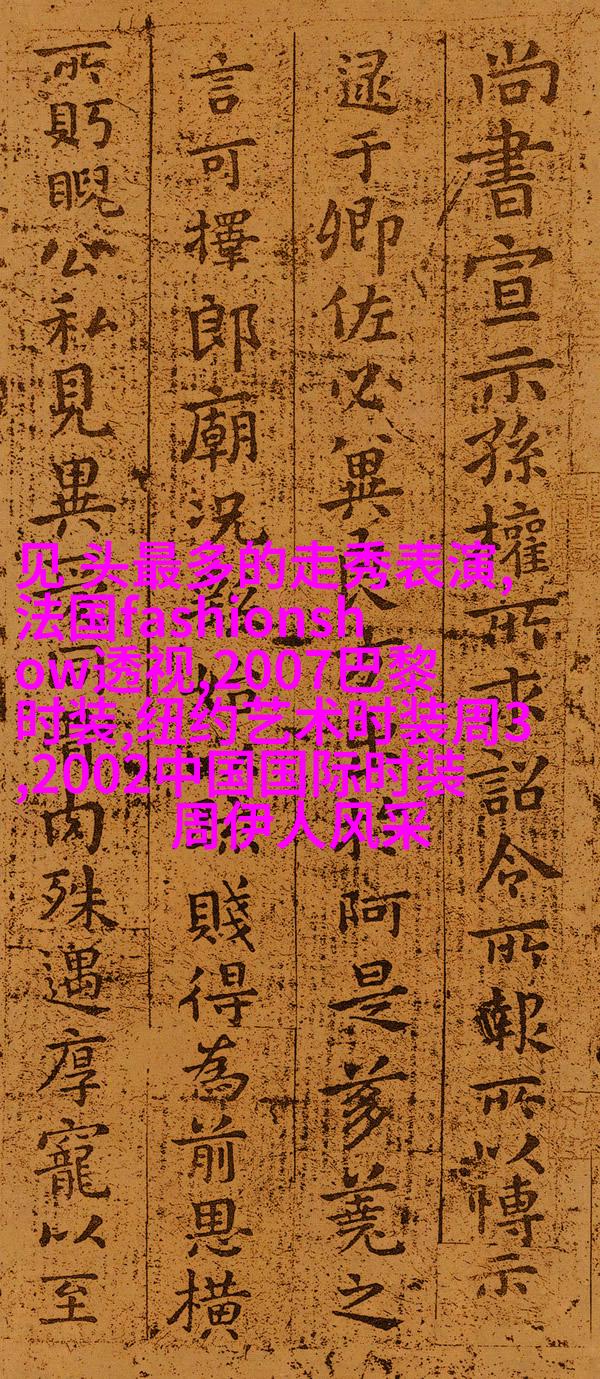 尚書宣示孫權所求詔令所報所以博示
逮于卿佐必異阿是芻蕘之
言可擇郎廟況賤得為前恩橫
所眄睨公私見異肉殊遇厚寵以至
见 头最多的走秀表演,
法国fashionsh
ow透视,2007巴黎
时装,纽约艺术时装周3
,2002中国国际时装
周伊人风采